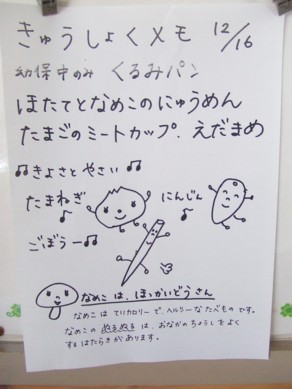 きゅうしょくメモ 12/16
幼保中のみ くるみパン
ほたてとなめこのにゅうめん
たまごのミートカップ. えだまめ
♫きよさとやさい♫
たまねぎ♪
にんじん♪
ごぼうー♫
なめこ は、ほっかいどうさん
なめこ は ていカロリー で、ヘルシーな たべもの です。
なめこの ぬるぬる は、おなかの ちょうし を よく
する はたらき が あります。